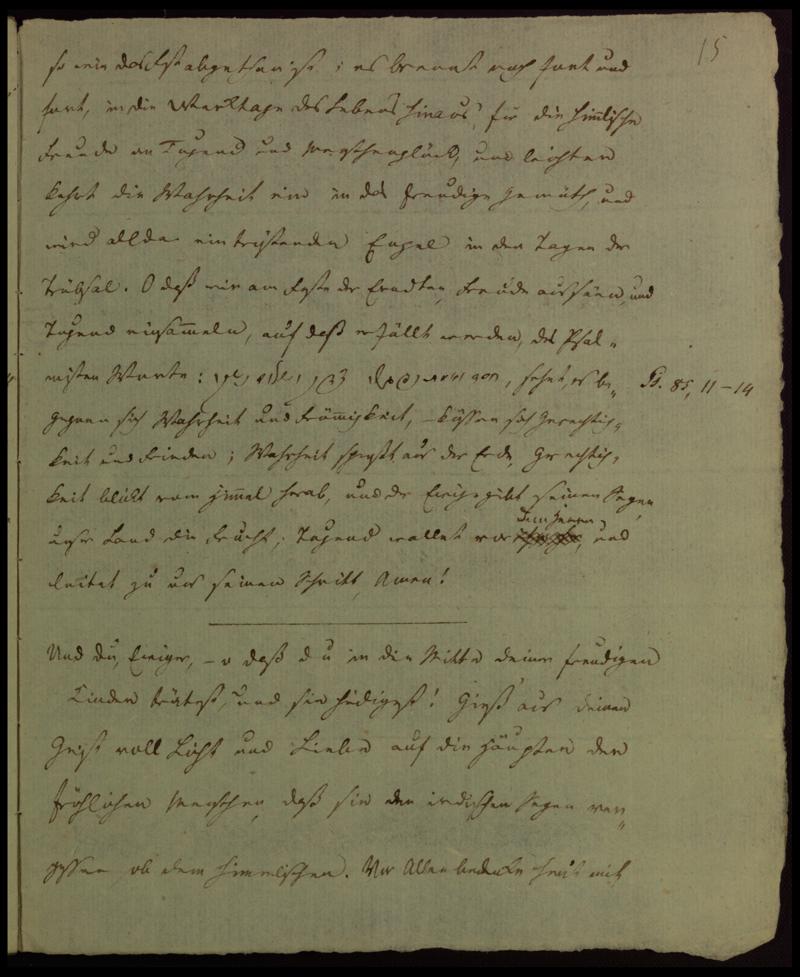 15
so wie das Fest abgethan ist; es brennt noch fort und
fort, in die Werktage des Lebens hinaus, für die himmlische
Freude an Tugend und Menschenglück, und leichter
kehrt die Wahrheit ein in das freudige Gemüth, und
wird allda ein tröstender Engel in den Tagen der
Trübsal. O daß wir am Feste der Erndten Freude aussäen, und
Tugend einsammeln, auf daß erfüllt werden, des Psal„
misten Worte: , sehet, es be„ Ps. 85, 11–14
gegnen sich Wahrheit und Frömmigkeit, – küssen sich Gerechtig„
keit und Frieden; Wahrheit sprosst aus der Erde, Gerechtig„
keit blickt vom Himmel herab, und der Ewige gibt seinen Segen
unser Land die Frucht; Tugend wallet vor ihm her, und
leitet zu uns seinen Schritt, Amen!
Und du, Ewiger, – o daß du in die Mitte deiner freudigen
Kinder trätest, und sie heiligest! Gieß' aus deinen
Geist voll Licht und Liebe auf die Häupter der
fröhlichen Menschen, daß sie den irdischen Segen ver„
gessen ob dem himmlischen. Vor Allen bedenke heut mit